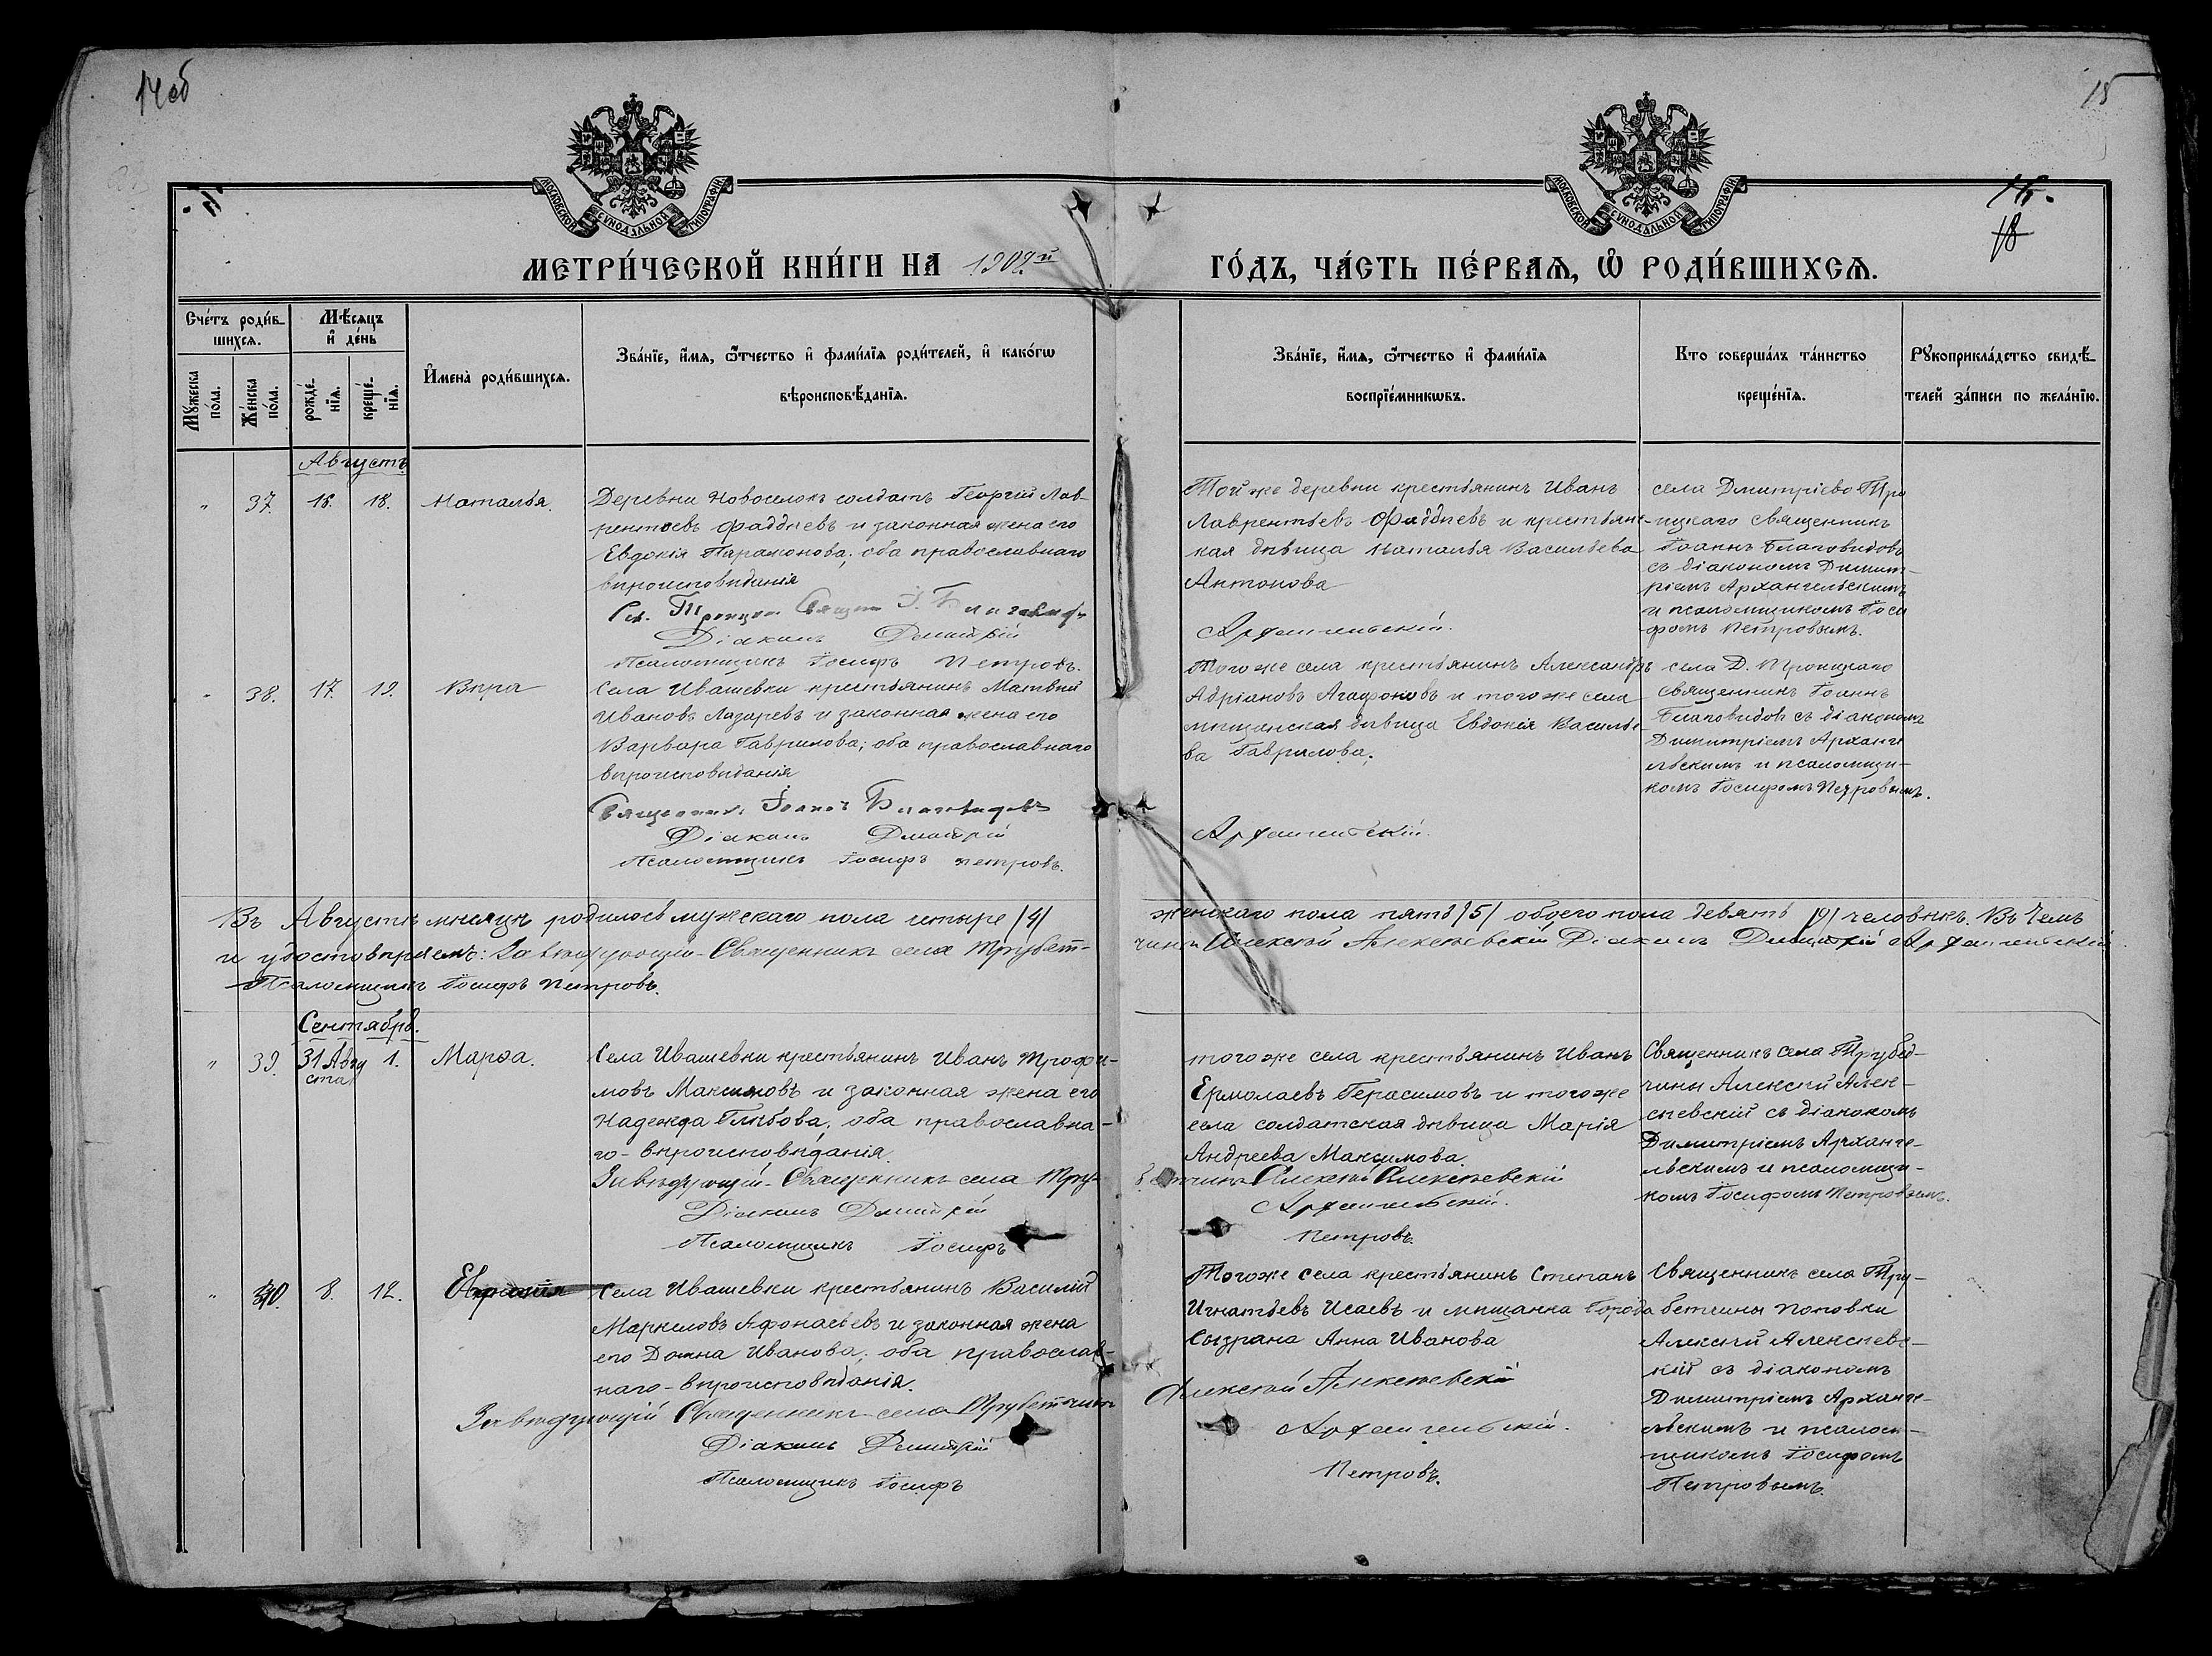 14 об
15
МОСКОВСКОЙ СѴНОДАЛЬНОЙ ТИПОГРАФІИ
МОСКОВСКОЙ СѴНОДАЛЬНОЙ ТИПОГРАФІИ
18
МЕТРИ́ЧЕСКОЙ КНИ́ГИ НА 1902й ГО́ДЪ, ЧА́СТЬ ПЕ́РВАѦ, Ѡ҆ РОДИ́ВШИХСѦ.
Сче́тъ роди́в-
шихсѧ.
Мꙋ́жеска по́ла.
Же́нска по́ла.
Мѣ́сѧцъ и҆ де́нь
рожде́-
нїѧ.
креще́-
нїѧ.
И҆мена̀ роди́вшихсѧ.
Зва́нїе, и҆́мѧ, ѻ҆́тчество и҆ фами́лїѧ роди́телей, и҆ како́гѡ
вѣроисповѣ́данїѧ.
Зва́нїе, и҆́мѧ, ѻ҆́тчество и҆ фами́лїѧ
воспрїе́мникѡвъ.
Кто соверша́лъ та́инство
креще́нїѧ.
Рꙋкоприкла́дство свидѣ́-
телей за́писи по жела́нїю.
Августъ
" 37. 16. 18. Наталья.
Деревни Новоселокъ солдатъ Георгій Лав-
рентьевъ Фаддѣевъ и законная жена его
Евдокія Парамонова; оба православнаго
вѣроисповѣданія
Діаконъ Дмитрій
Псаломщикъ Іосифъ Петровъ.
Той же деревни крестьянинъ Иванъ
Лаврентьевъ Фаддѣевъ и крестьянс-
кая дѣвица Наталья Васильева
Антонова
Архангельскій.
села Дмитріево Тро
ицкаго Священникъ
Іоаннъ Благовидовъ
съ діакономъ Димит-
ріемъ Архангельскимъ
и псаломщикомъ Іоси
фомъ Петровымъ.
" 38. 17. 19. Вѣра
Села Ивашевки крестьянинъ Матвѣй
Ивановъ Лазаревъ и законная жена его
Варвара Гаврилова; оба православнаго
вѣроисповѣданія
Священникъ Іоаннъ Благовидовъ
Діаконъ Дмитрій
Псаломщикъ Іосифъ Петровъ.
Того же села крестьянинъ Александръ
Адріановъ Агафоновъ и того же села
мѣщанская дѣвица Евдокія Василье-
ва Гаврилова.
Архангельскій.
села Д. Троицкаго
Священникъ Іоаннъ
Благовидовъ съ діакономъ
Димитріемъ Арханге
льскимъ и псаломщи-
комъ Іосифомъ Петровымъ.
Въ Августѣ мѣсяцѣ родилось мужскаго пола четыре /4/ женскаго пола пять /5/ обоего пола девять /9/ человѣкъ. Въ чемъ
и удостовѣряемъ: Завѣдующій Священникъ села Трубет-чины Алексѣй Алексѣевскій Діаконъ Дмитрій Архангельскій.
Псаломщикъ Іосифъ Петровъ.
Сентябрь.
" 39. 31 Авгу
ста 1. Марѳа.
Села Ивашевки крестьянинъ Иванъ Трофи-
мовъ Максимовъ и законная жена его
Надежда Глѣбова, оба православна-
го-вѣроисповѣданія.
Завѣдующій-Священникъ села Тру-
бетчины Алексѣй Алексѣевскій
Діаконъ Дмитрій Архангельскій.
Псаломщикъ Іосифъ Петровъ.
того же села крестьянинъ Иванъ
Ермолаевъ Герасимовъ и того же
села солдатская дѣвица Марія
Андреева Максимова.
Священникъ села Трубет-
чины Алексѣй Алек-
сѣевскій съ діакономъ
Димитріемъ Арханге-
льскимъ и псаломщи-
комъ Іосифомъ Петровымъ.
" 40. 8. 12.
Села Ивашевки крестьянинъ Василій
Маркеловъ Афонасьевъ и законная жена
его Домна Иванова, оба православ-
наго-вѣроисповѣданія.
Завѣдующій Священникъ села Трубетчины Алексѣй Алексѣевскій
Діаконъ Дмитрій Архангельскій.
Псаломщикъ Іосифъ Петровъ.
Того же села крестьянинъ Степанъ
Игнатьевъ Исаевъ и мѣщанка города
Сызрана Анна Иванова
Священникъ села Тру-
бетчины Поповки
Алексѣй Алексѣевс-
кій съ діакономъ
Димитріемъ Арханге-
льскимъ и псалом-
щикомъ Іосифомъ
Петровымъ.